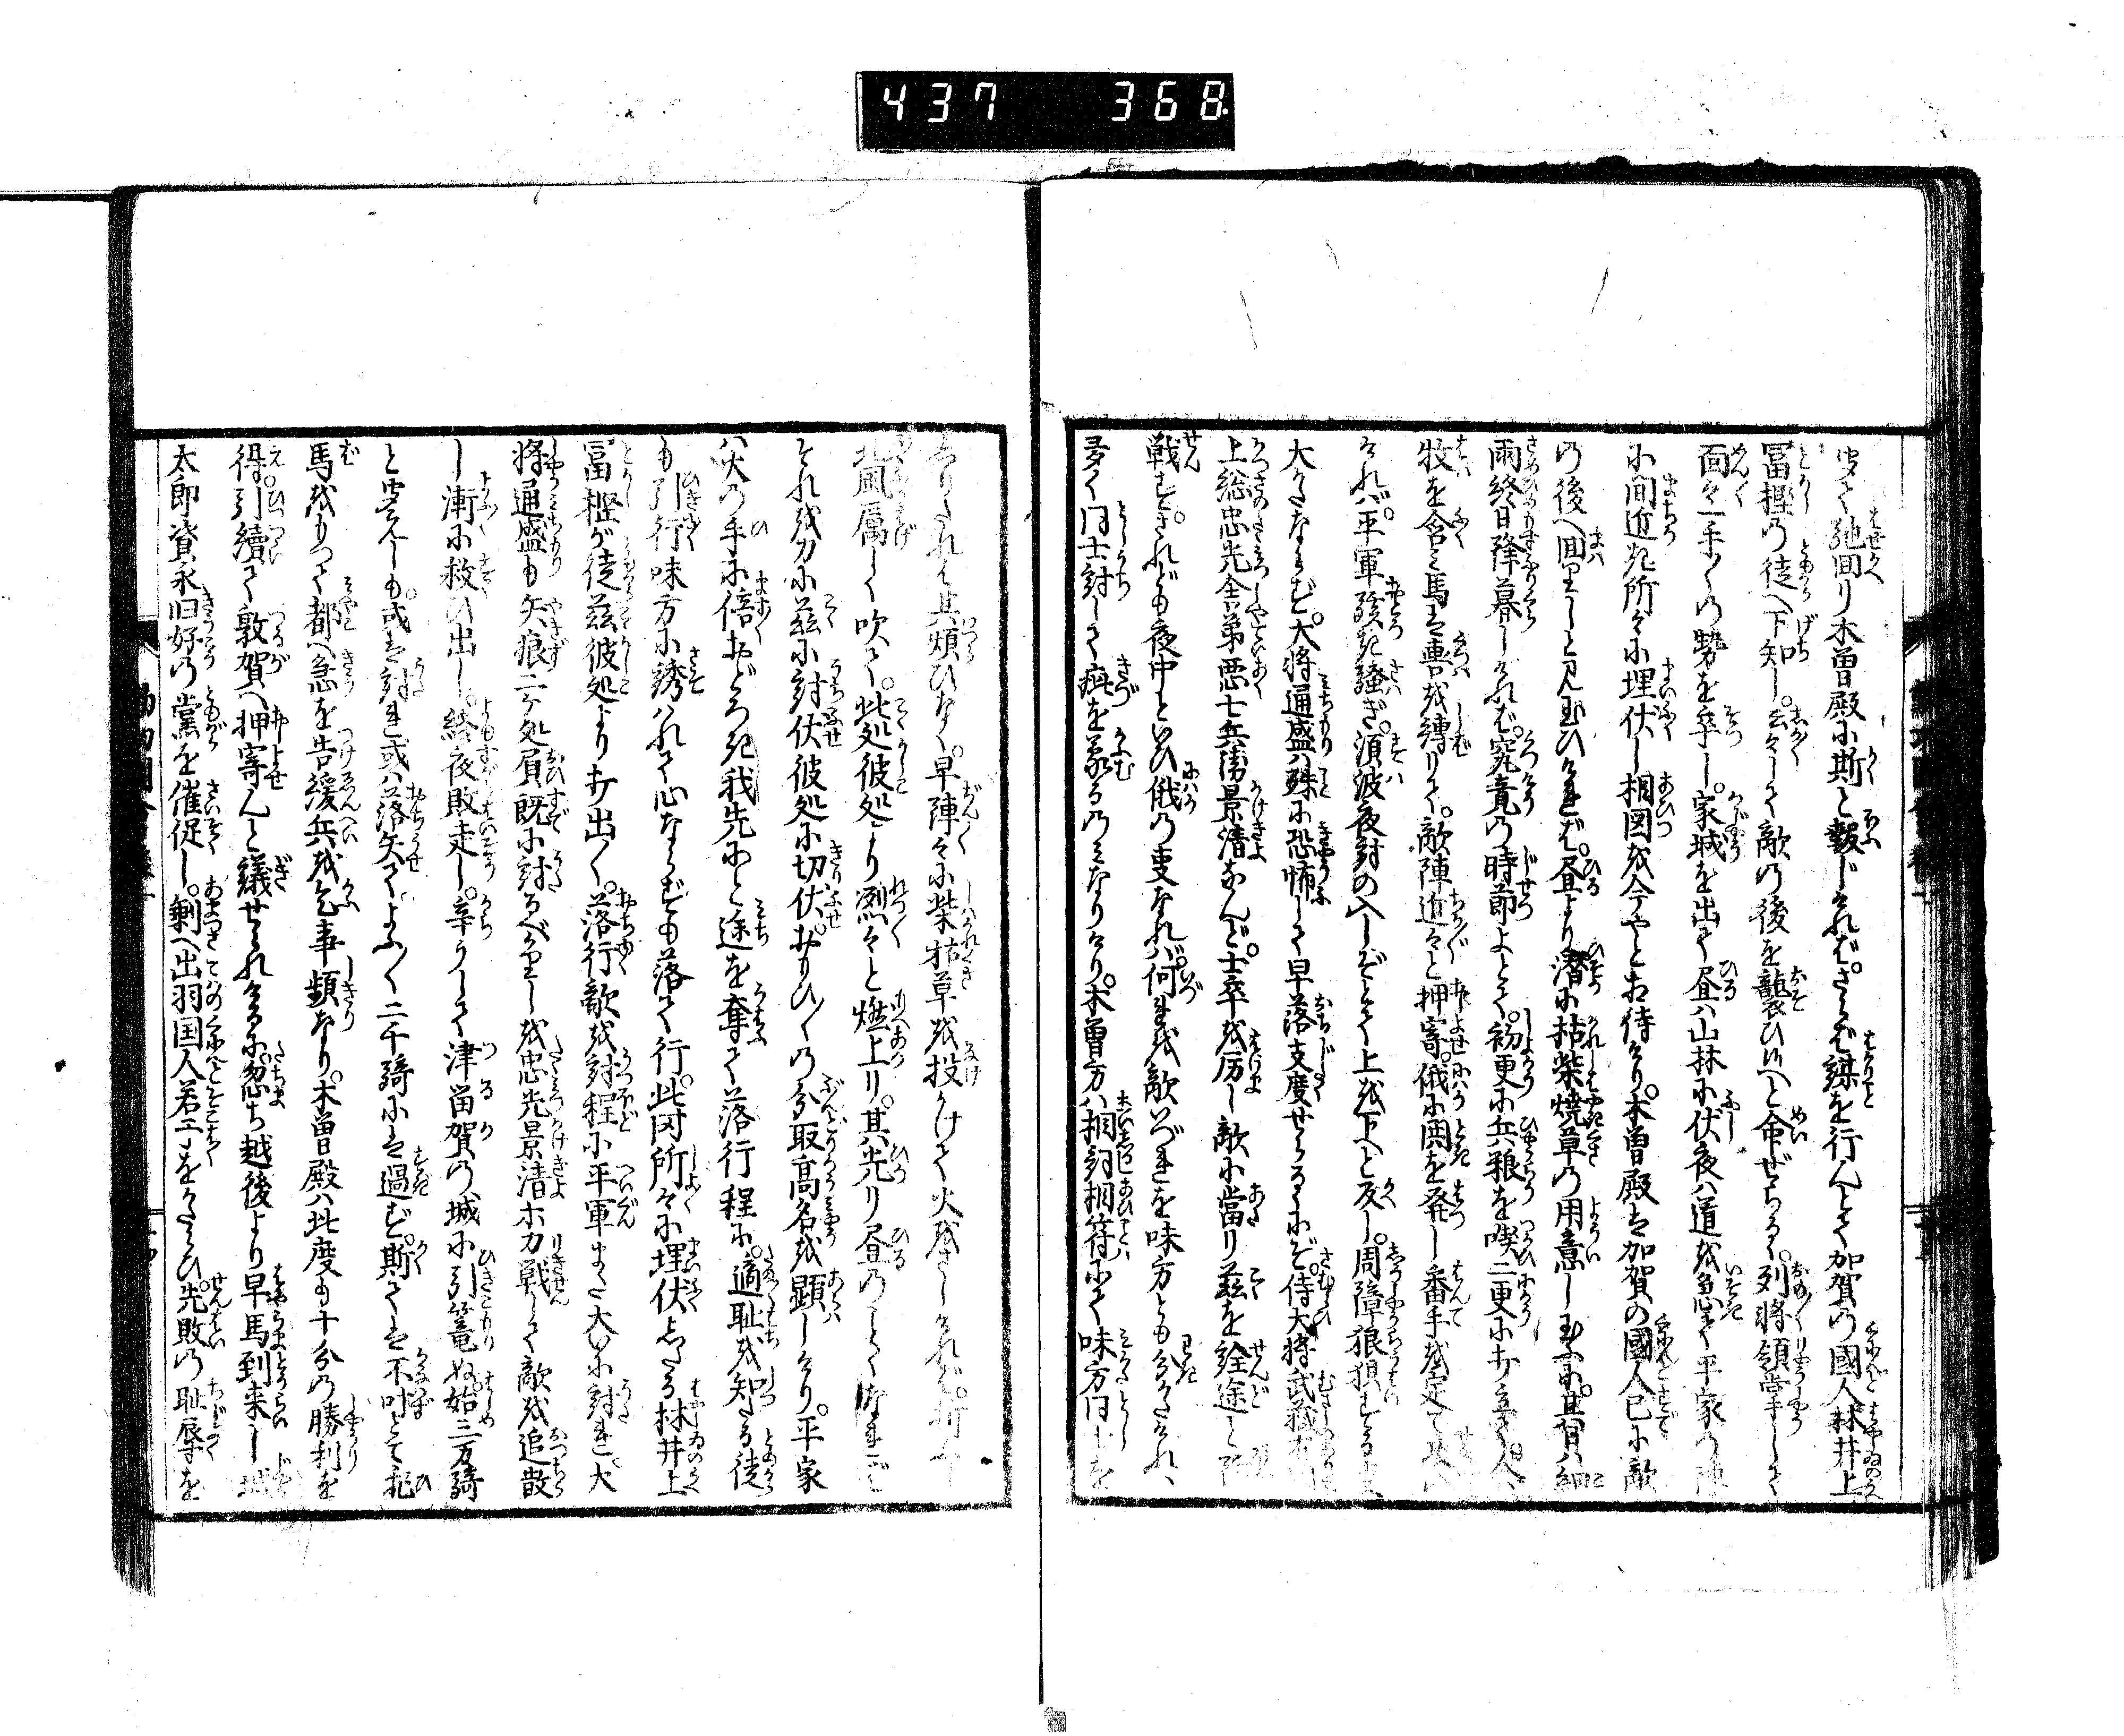 437 368
馳回り木曽殿に斯と報じければ。さらば謀を行んとて加賀の國人林井上
冨樫の徒へ下知し。云々して敵の後を襲ひ候へと命ぜらるゝ。列将領掌して
面々一手〳〵の勢を率し。家城を出て昼ハ山林に伏夜ハ道を急て平家の陣
に間近き所々に埋伏し相図を今やと相待けり。木曽殿は加賀の國人已に敵
の後へ回りしと見玉ひければ。昼より潜に枯柴焼草の用意し玉ふに。其宵ハ細
雨終日降暮しければ。究竟の時節よとて。初更に兵粮を喫二更に打立て人ハ
牧を含ミ馬は轡を縛りて。敵陣近々と押寄。俄に鬨を発し番手を定て
けれバ。平軍駭き騒ぎ。須波夜討の入しぞとて上を下へと反し。周障狼狽する
大かたならず。大将通盛ハ殊に恐怖して早落支度せらるゝにぞ。侍大将武蔵有
上総忠光舎弟悪七兵衛景清なんど。士卒を励し敵に當り茲を詮途と防
戦ひき。されども夜中といひ俄の事なれバ。何れを敵いづれを味方とも分かたざれハ、
多く同士討して疵を蒙るのミなりけり。木曽方ハ相印相符にて味方同士を
其煩ひなく。早陣々に柴枯草を投かけて火をさしければ。折
北風厲しく吹て。此処彼処より烈々と燃上り。其光り昼のごとくなれば
それを力に茲に討伏彼処に切伏。おもひ〳〵の分取高名を顕しけり。平家
ハ火の手に倍おどろき我先にと途を奪て落行程に。適恥を知たる徒
も引行味方に誘ハれて心ならずも落て行。此時所々に埋伏したる林井上
冨樫が徒茲彼処より打出て。落行敵を討程に平軍また大いに討れ。大
将通盛も矢痕二ケ処負既に討るべかりしを忠光景清ホ力戦して敵を追散
し漸に救ひ出し。終夜敗走し。辛うして津留賀の城に引篭ぬ。始三万騎
と聞えしも。或は討れ或ハ落失てよふ〳〵二千騎には過ず。斯ては不叶とて飛
馬をもつて都へ急を告援兵を乞事頻なり。木曽殿ハ此度も十分の勝利を
得。引續て敦賀へ押寄んと議せられけるに。忽ち越後より早馬到来し城
太郎資永旧好の黨を催促し。剰へ出羽国人若エをかたらひ。先敗の恥辱を